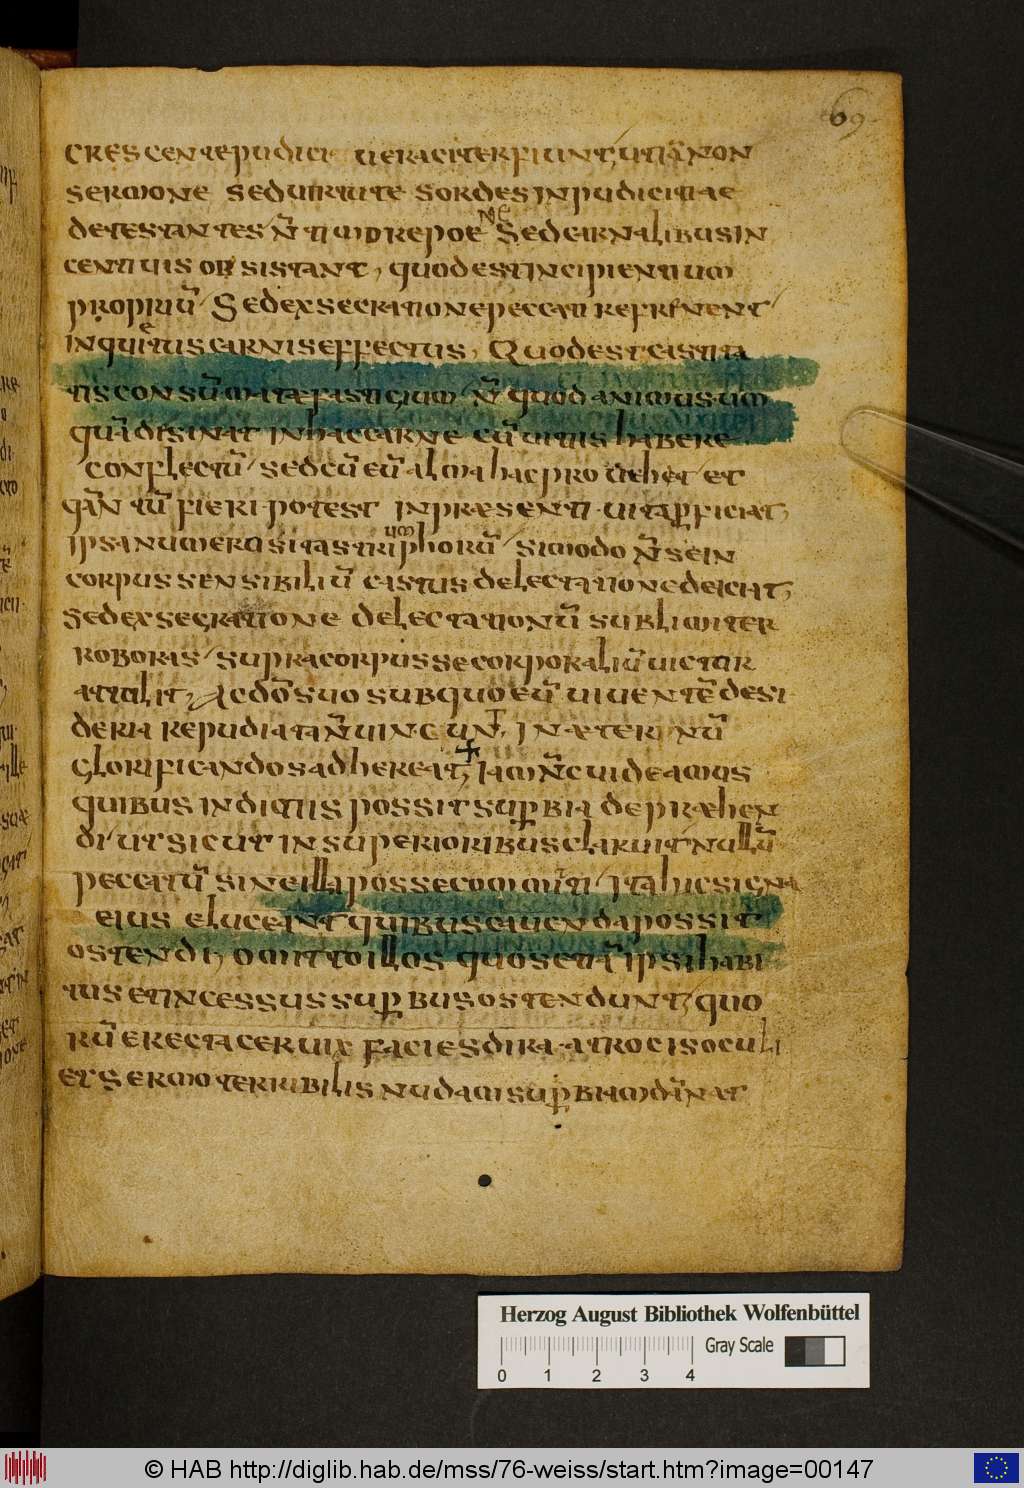 69
crescente pudici ueraciter fiunt, ut iā non
sermone sed uirtute sordes inpudicitiae
detestantes n̄ timore poene sed carnalibus in
centiuis obsistant, quod est incipientium
propriū Sed exsecratione peccati refrenent
inquietus carnis effectus, Quod est castita
tis consūmatae fastigium n̄ quod animus um
quā disinat in hac carne cū uitiis habere
conflectū sed cū eū alma hac prouehet et
quāntū fieri potest in praesenti uita ꝑficiat,
ipsa numerositas triumphorū si modo n̄ se in
corpus sensibiliū castus delectatione deiciat,
sed exsecratione delectationū sublimiter
roboras supra corpus se corporaliū uictor
attulit, Ac dōn suo sub quo eū uiuentē desi
deria repudiata n̄ uincunt, in aeternū
glorificandos adhereat, iam nc̄ uideamus
quibus indiciis possit suꝑbia depraehen
di ut sicut in superioribus claruit nullū
peccatū sine illa posse committi ita hic signa
eius eluceant quibus cauenda possit
ostendi, omitto illos quos etiā ipsi habi
tus et incessus suꝑbus ostendunt, quo
rū erecta ceruix facies dira atroces oculi
et sermo terribilis nudam suꝑbiam clāmat
Herzog August Bibliothek Wolfenbüttel
Gray Scale
0 1 2 3 4
© HAB http://diglib.hab.de/mss/76-weiss/start.htm?image=00147